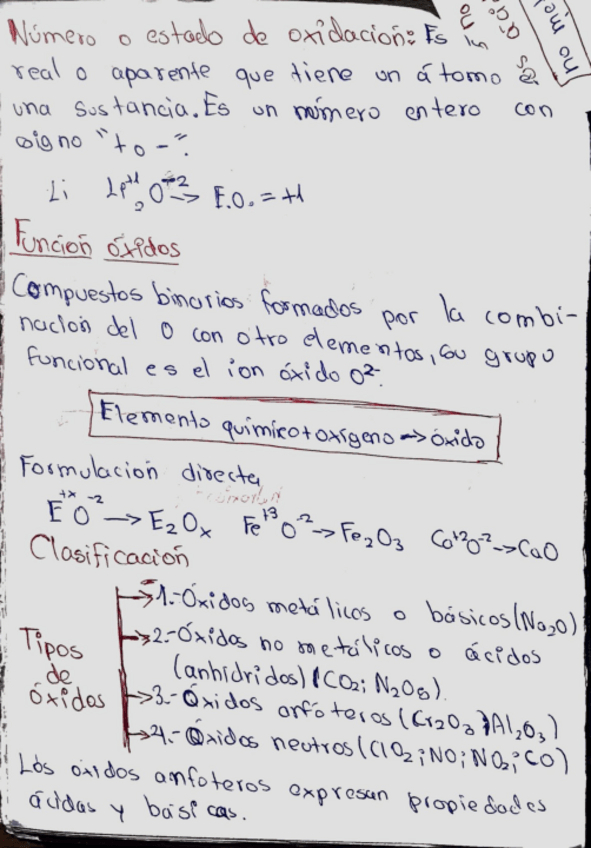 Número o estado de oxidación: Es un
real o aparente que tiene un átomo
una sustancia. Es un número entero con
signo "+ o -".
Li Li⁺¹₂O⁻² → E.O. = +1
Función óxidos
Compuestos binarios formados por la combi-
nación del O con otro elementos, su grupo
funcional es el ion óxido O²⁻.
Elemento químico + oxígeno → óxido
Formulación directa
E⁺ˣO⁻² → E₂Oₓ Fe⁺³O⁻² → Fe₂O₃ Ca⁺²O⁻² → CaO
Clasificación
Tipos
de
óxidos
1.- Óxidos metálicos o básicos (Na₂O)
2.- Óxidos no metálicos o ácidos
(anhídridos) (CO₂; N₂O₃).
3.- Óxidos anfóteros (Cr₂O₃) Al₂O₃)
4.- Óxidos neutros (ClO₂; NO; NO₂; CO)
Los óxidos anfoteros expresan propiedades
ácidas y básicas.
no me